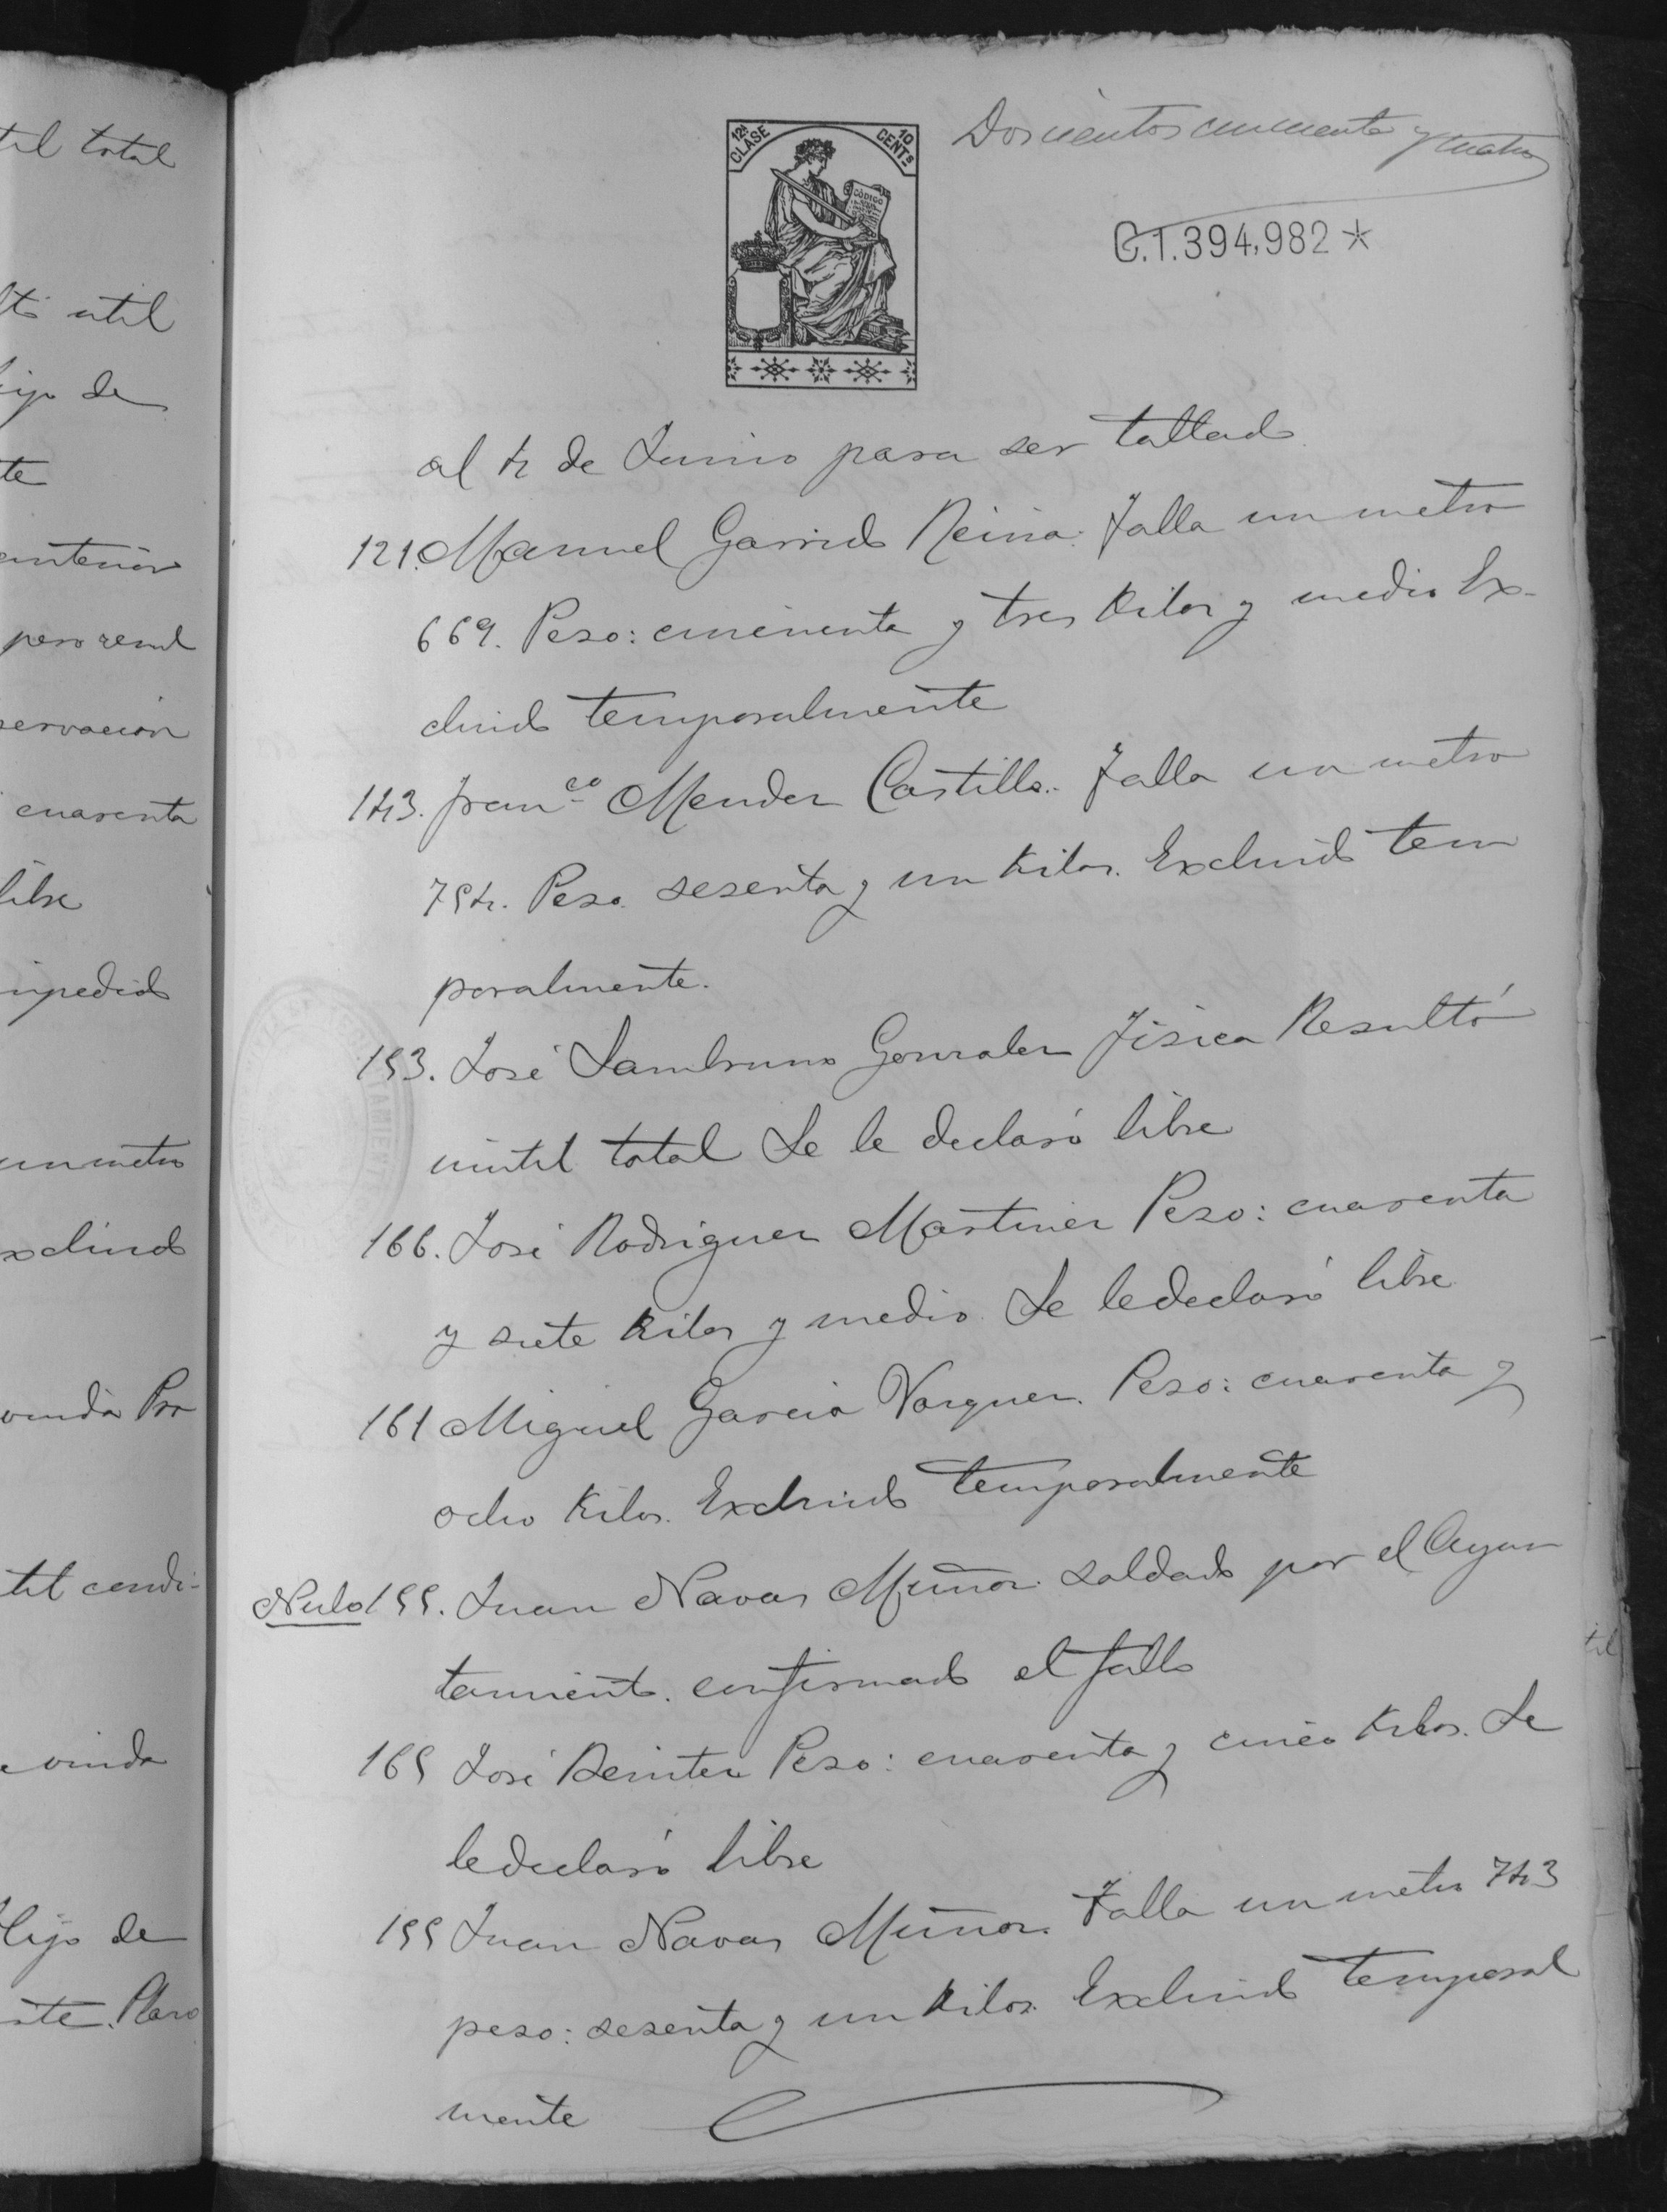 Doscientos cincuenta y cuatro
12ª CLASE
10 CENTs
CODIGO
C.1.394,982 *
al 4 de Junio para ser tallado
121. Manuel Garrido Reina. Talla un metro
669. Peso: cincuenta y tres kilos y medio Ex-
cluido temporalmente
143. Franco Mendez Castillo. Talla un metro
754. Peso sesenta y un kilos. Excluido tem
poralmente.
153. José Sambruno Gonzalez Física Resultó
inutil total Se le declaró libre
166. José Rodriguez Martinez Peso: cuarenta
y siete kilos y medio. Se le declaró libre
161 Miguel Garcia Vazquez. Peso: cuarenta y
ocho kilos. Excluido temporalmente
Nulo 155. Juan Navas Muñoz. soldado por el Ayun
tamiento. confirmado el fallo
165 José Benitez Peso: cuarenta y cinco kilos. Se
le declaró libre
155 Juan Navas Muñoz. Talla un metro 743
peso: sesenta y un kilos. Excluido temporal
mente
til total
útil
hijo de
te
anterior
pero resul
servacion
cuarenta
libre
mpedido
un metro
xcluido
viuda Po
til condi-
viuda
Hijo de
nte.